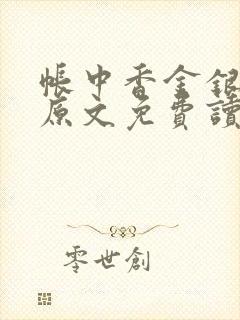 帳中香金銀
原文免費讀
零世創